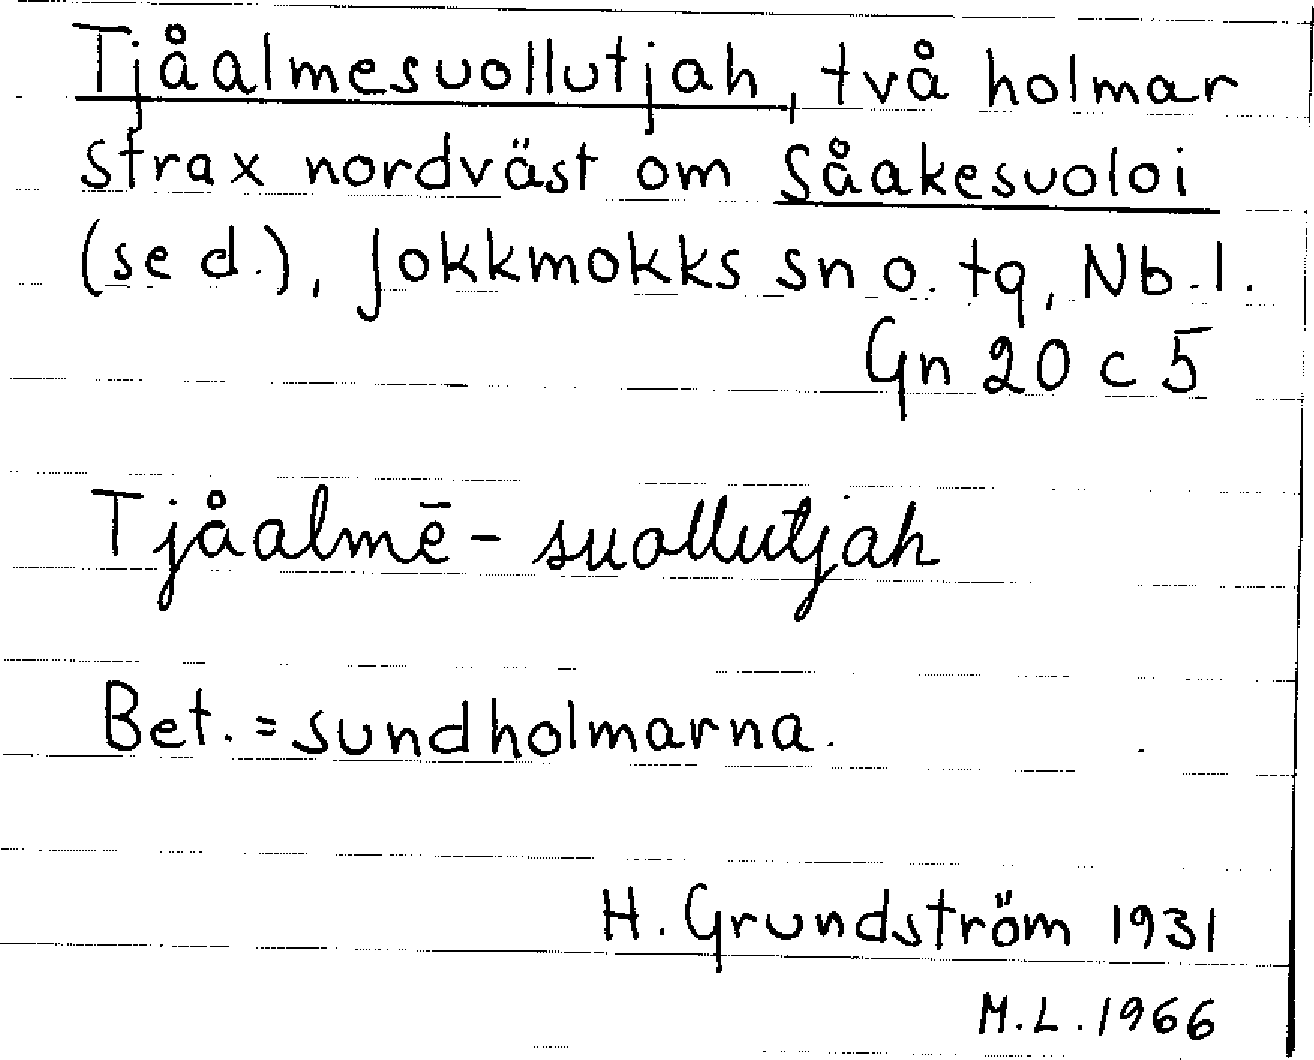 Tjåalmesuollutjah, två holmar
strax nordväst om Såakesuoloi
(se d.), Jokkmokks sn o. tg, Nb. l.
Gn 20 c 5
Tjåalmē - suollutjah
Bet. = sundholmarna.
H. Grundström 1931
M.L. 1966